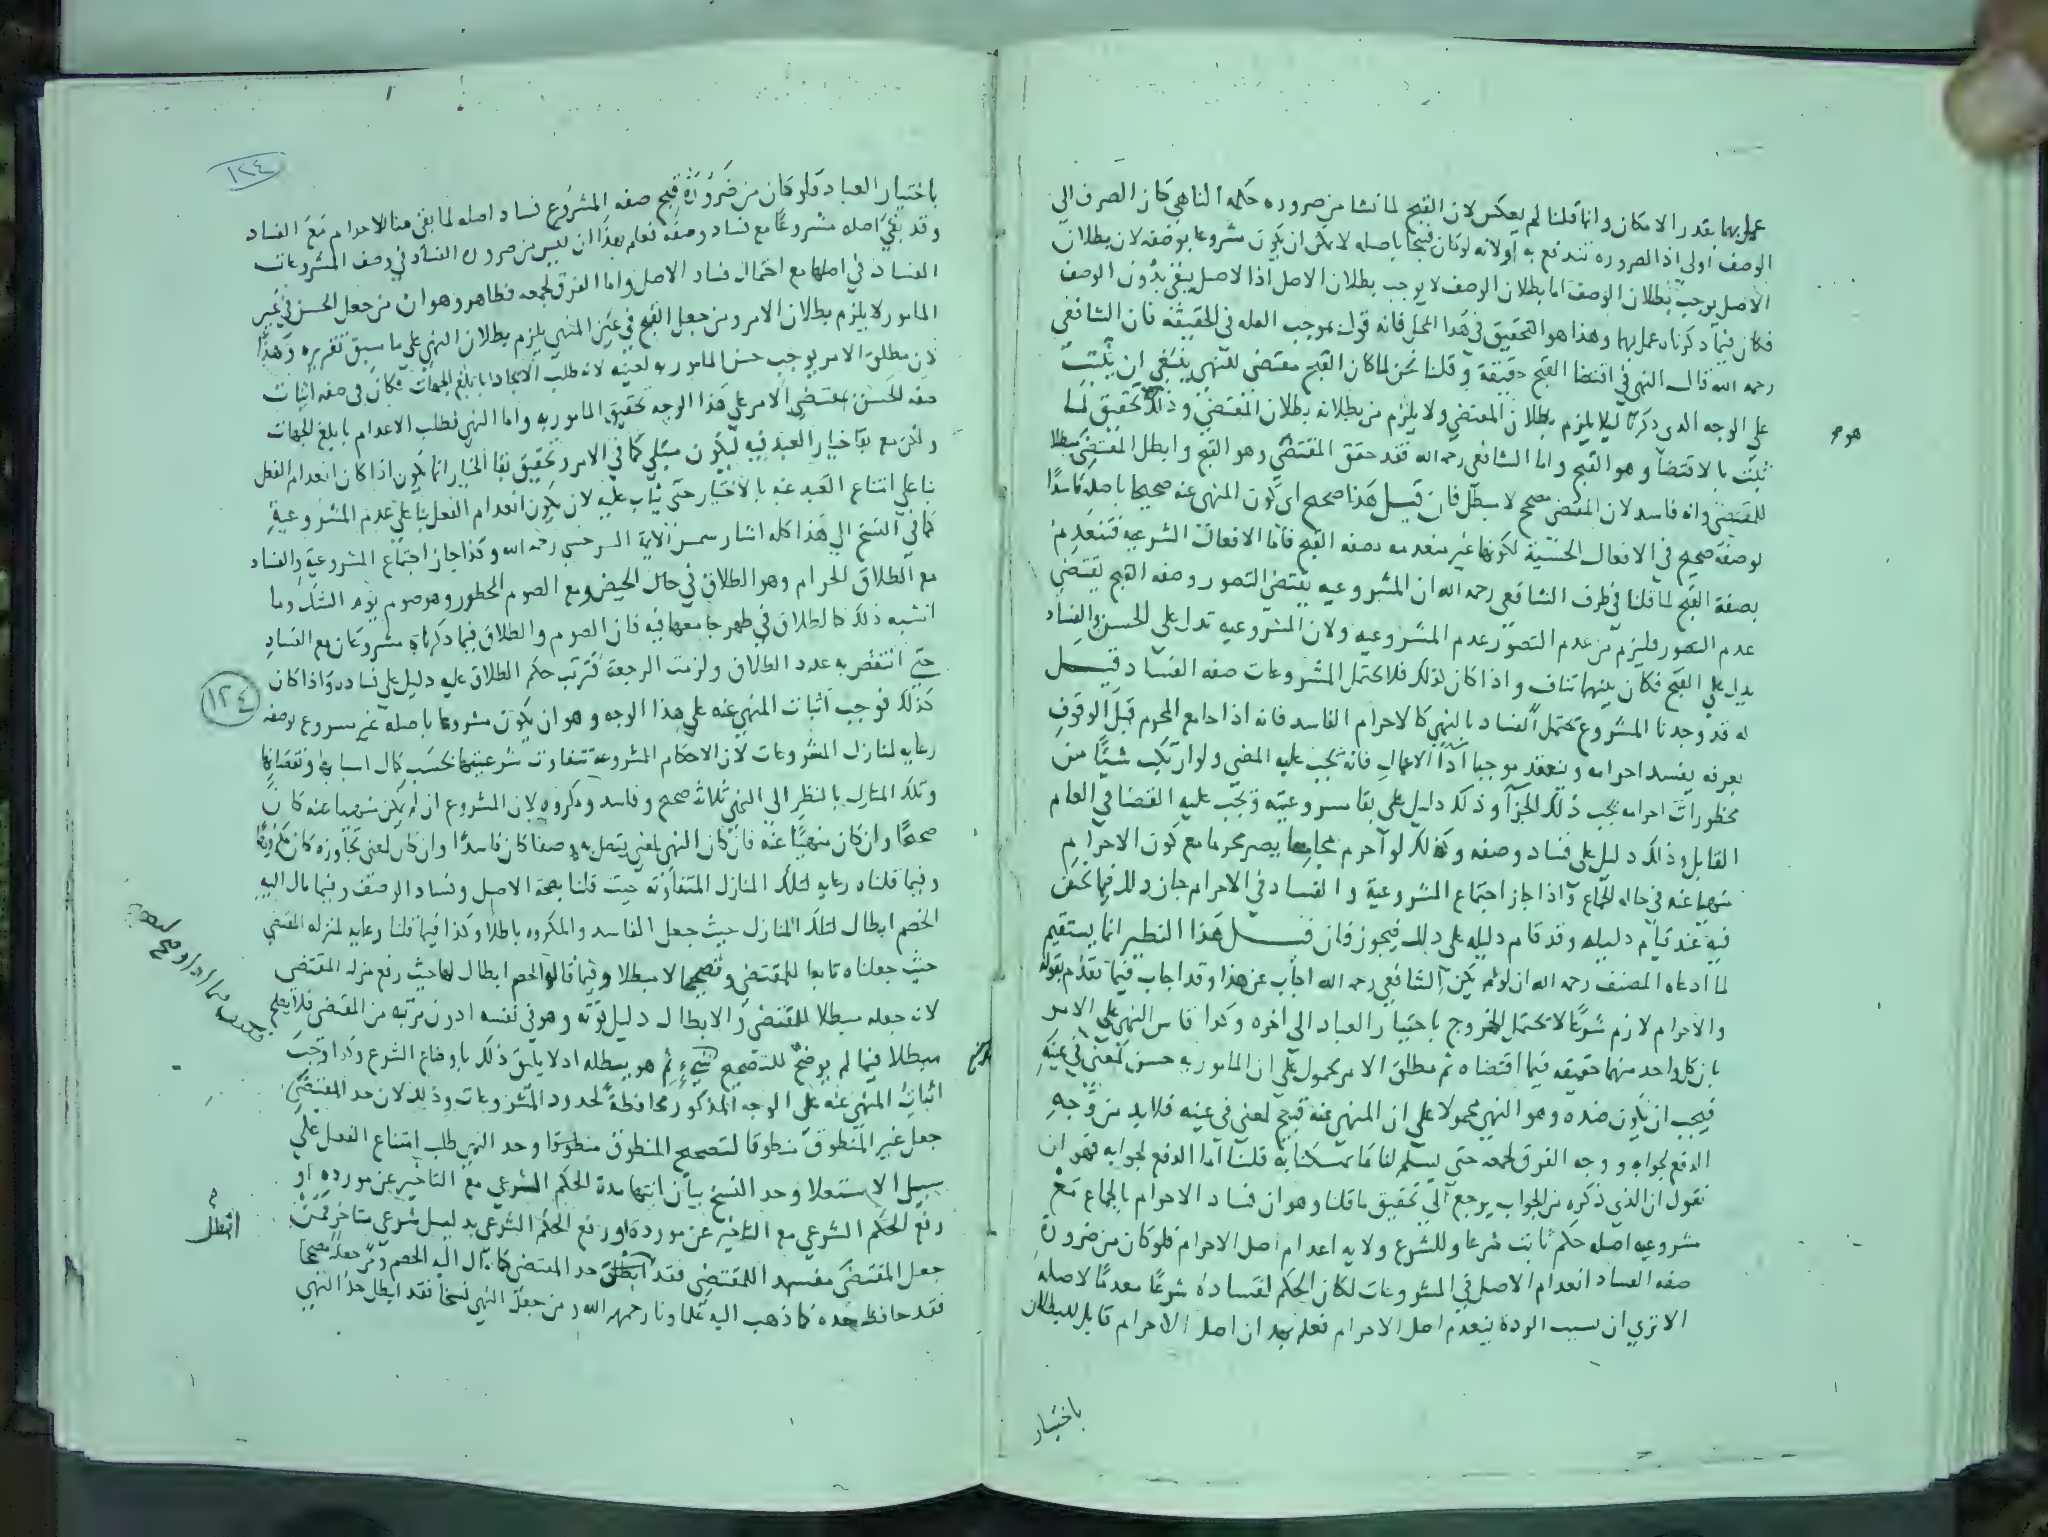 عمل بهما بقدر الامكان وانما قلنا لم يعكس لان القبح لما نشا من ضروره حكمه الناهي كان الصرف الي
الوصف اولي اذ الضروره تندفع به اولانه لو كان قبيحا باصله لا يمكن ان يكون مشروعا بوصفه لان بطلان
الاصل يوجب بطلان الوصف اما بطلان الوصف لا يوجب بطلان الاصل اذ الاصل يبقى بدون الوصف
فكان فيما ذكرناه عمل بهما وهذا هو التحقيق في هذا المحل فانه قول بموجب العله في الحقيقة فان الشافعي
رحمه الله قال النهي في اقتضا القبح حقيقة وقلنا نحن لما كان القبح مقتضى للنهي ينبغي ان يثبت
علي الوجه الدي ذكرنا ليلا يلزم بطلان المقتضي ولا يلزم من بطلانه بطلان المقتضى وذلك تحقيق لما
ثبت بالاقتضا وهو القبح واما الشافعي رحمه الله فقد حقق المقتضي وهو القبح وابطل المقتضي مبطلا
للمقتضي وانه فاسد لان المقتضى مصحح لا مبطل فان قيل هذا صحيح اي كون المنهي عنه صحيحا باصله فاسدا
بوصفه صحيح في الافعال الحسية لكونها غير منعدمه بصفه القبح فاما الافعال الشرعيه فتنعدم
بصفة القبح لما قلنا في طرف الشافعي رحمه الله ان المشروعيه يقتضي التصور وصفه القبح يقتضي
عدم التصور فيلزم من عدم التصور عدم المشروعيه ولان المشروعيه تدل علي الحسن والفساد
يدل علي القبح فكان بينهما تناف واذا كان لذلك فلا يحتمل المشروعات صفه الفساد قيل
له قد وجدنا المشروع يحتمل الفساد بالنهي كالاحرام الفاسد فانه اذا جامع المحرم قبل الوقوف
بعرفه يفسد احرامه وينعقد موجبا اداء الاعمال فانه يجب عليه المضي ولو ارتكب شيئا من
محظورات احرامه يجب ذلك الجزا وذلك دليل علي بقا مشروعيته ويجب عليه القضا في العام
القابل وذلك دليل علي فساد وصفه وكذلك لو احرم مجامعا يصير محرما مع كون الاحرام
منهيا عنه في حاله الجماع واذا جاز اجتماع المشروعية والفساد في الاحرام جاز ذلك فيما نحن
فيه عند قيام دليله وقد قام دليله علي ذلك فيجوز فان قيل هذا النظير انما يستقيم
لما ادعاه المصنف رحمه الله ان لو لم يكن الشافعي رحمه الله اجاب عن هذا وقد اجاب فيما تقدم بقوله
والاحرام لازم شرعا لا يحتمل الخروج باختيار العباد الي اخره وكذا قاس النهي علي الامر
بان كل واحد منهما حقيقه فيما اقتضاه ثم مطلق الامر محمول علي ان المامور به حسن لمعني في عينه
فيجب ان يكون ضده وهو النهي محمولا علي ان المنهي عنه قبيح لمعني في عينه فلا بد من وجه
الدفع لجوابه ووجه الفرق لجمعه حتي يسلم لنا ما تمسكنا به قلنا اما الدفع لجوابه فهو ان
نقول ان الذي ذكره من الجواب يرجع الي تحقيق ما قلنا وهو ان فساد الاحرام بالجماع مع
مشروعيه اصله حكم ثابت شرعا وللشرع ولايه اعدام اصل الاحرام فلو كان من ضرورة
صفه الفساد انعدام الاصل في المشروعات لكان الحكم لفساده شرعا معدما لاصله
الا تري ان بسبب الردة ينعدم اصل الاحرام فعلم بهذا ان اصل الاحرام قابل للبطلان
باختيار
١٢٤
باختيار العباد فلو كان من ضرورة قبح صفه المشروع فساد اصله لما بقي هنا الاحرام مع الفساد
وقد بقي اصله مشروعا مع فساد وصفه فعلم بهذا ان ليس من ضروره الفساد في وصف المشروعات
الفساد في اصلها مع احتمال فساد الاصل واما الفرق لجمعه فظاهر وهو ان من جعل الحسن في غير
المامور لا يلزم بطلان الامر ومن جعل القبح في عين المنهي يلزم بطلان النهي علي ما سبق تقريره وهذا
لان مطلق الامر يوجب حسن المامور به لعينه لانه طلب الايجاد بابلغ الجهات فكان في صفه اثبات
صفه الحسن بمقتضي الامر علي هذا الوجه تحقيق المامور به واما النهي فطلب الاعدام بابلغ الجهات
ولكن مع بقا اختيار العبد فيه ليكون مبتلي كما في الامر وتحقيق بقا الخيار انما يكون اذا كان انعدام الفعل
بنا علي امتناع العبد عنه بالاختيار حتي يثاب عليه لان يكون انعدام الفعل بنا علي عدم المشروعية
كما في النسخ الي هذا كله اشار شمس الايمة السرخسي رحمه الله وكذا جاز اجتماع المشروعية والفساد
مع الطلاق الحرام وهو الطلاق في حال الحيض ومع الصوم المحظور وهو صوم يوم الشك وما
اشبه ذلك كالطلاق في طهر جامعها فيه فان الصوم والطلاق فيما ذكرناه مشروعان مع الفساد
حتي انتقض به عدد الطلاق ولزمت الرجعة فترتب حكم الطلاق عليه دليل علي فساده واذا كان
كذلك فوجب اثبات المنهي عنه علي هذا الوجه وهو ان يكون مشروعا باصله غير مشروع بوصفه
١٢٤
رعايه لمنازل المشروعات لان الاحكام المشروعة تتفاوت شرعيتها بحسب كمال اسبابها ونقصانها
وتلك المنازل بالنظر الي النهي ثلاثه صحيح وفاسد ومكروه لان المشروع ان لم يكن منهيا عنه كان
صحيحا وان كان منهيا عنه فان كان النهي لمعني يتصل به وصفا كان فاسدا وان كان لمعني تجاوره كان مكروها
وفيما قلناه رعايه لتلك المنازل المتفاوته حيث قلنا بصحة الاصل وفساد الوصف وفيما مال اليه
الخصم ابطال لتلك المنازل حيث جعل الفاسد والمكروه باطلا وكذا فيما قلنا رعايه لمنزله المقتضي
حيث جعلناه تابعا للمقتضي وتصحيحا لا مبطلا وفيما قاله الخصم ابطال لها حيث رفع منزله المقتضى
لانه جعله مبطلا للمقتضي والابطال دليل قوته وهو في نفسه ادون مرتبه من المقتضي فلا يصلح
مبطلا فيما لم يوضح للتصحيح شيء ثم هو يبطله اذ لا يليق ذلك باوضاع الشرع وكذا وجب
اثبات المنهي عنه علي الوجه المذكور محافظة لحدود المشروعات وذلك لان حد المقتضي
جعل غير المنطوق منطوقا لتصحيح المنطوق منطوقا وحد النهي طلب امتناع الفعل علي
سبيل الاستعلا وحد النسخ بيان انتها مدة الحكم الشرعي مع التاخير عن مورده او
رفع الحكم الشرعي مع التاخير عن مورده او رفع الحكم الشرعي بدليل شرعي متاخر فمن
جعل المقتضي مفسدا للمقتضي فقد ابطل حد المقتضي كما مال اليه الخصم ومن جعله مصححا
فقد حافظ حده كما ذهب اليه علماونا رحمهم الله ومن جعل النهي نسخا فقد ابطل حد النهي
ابطل